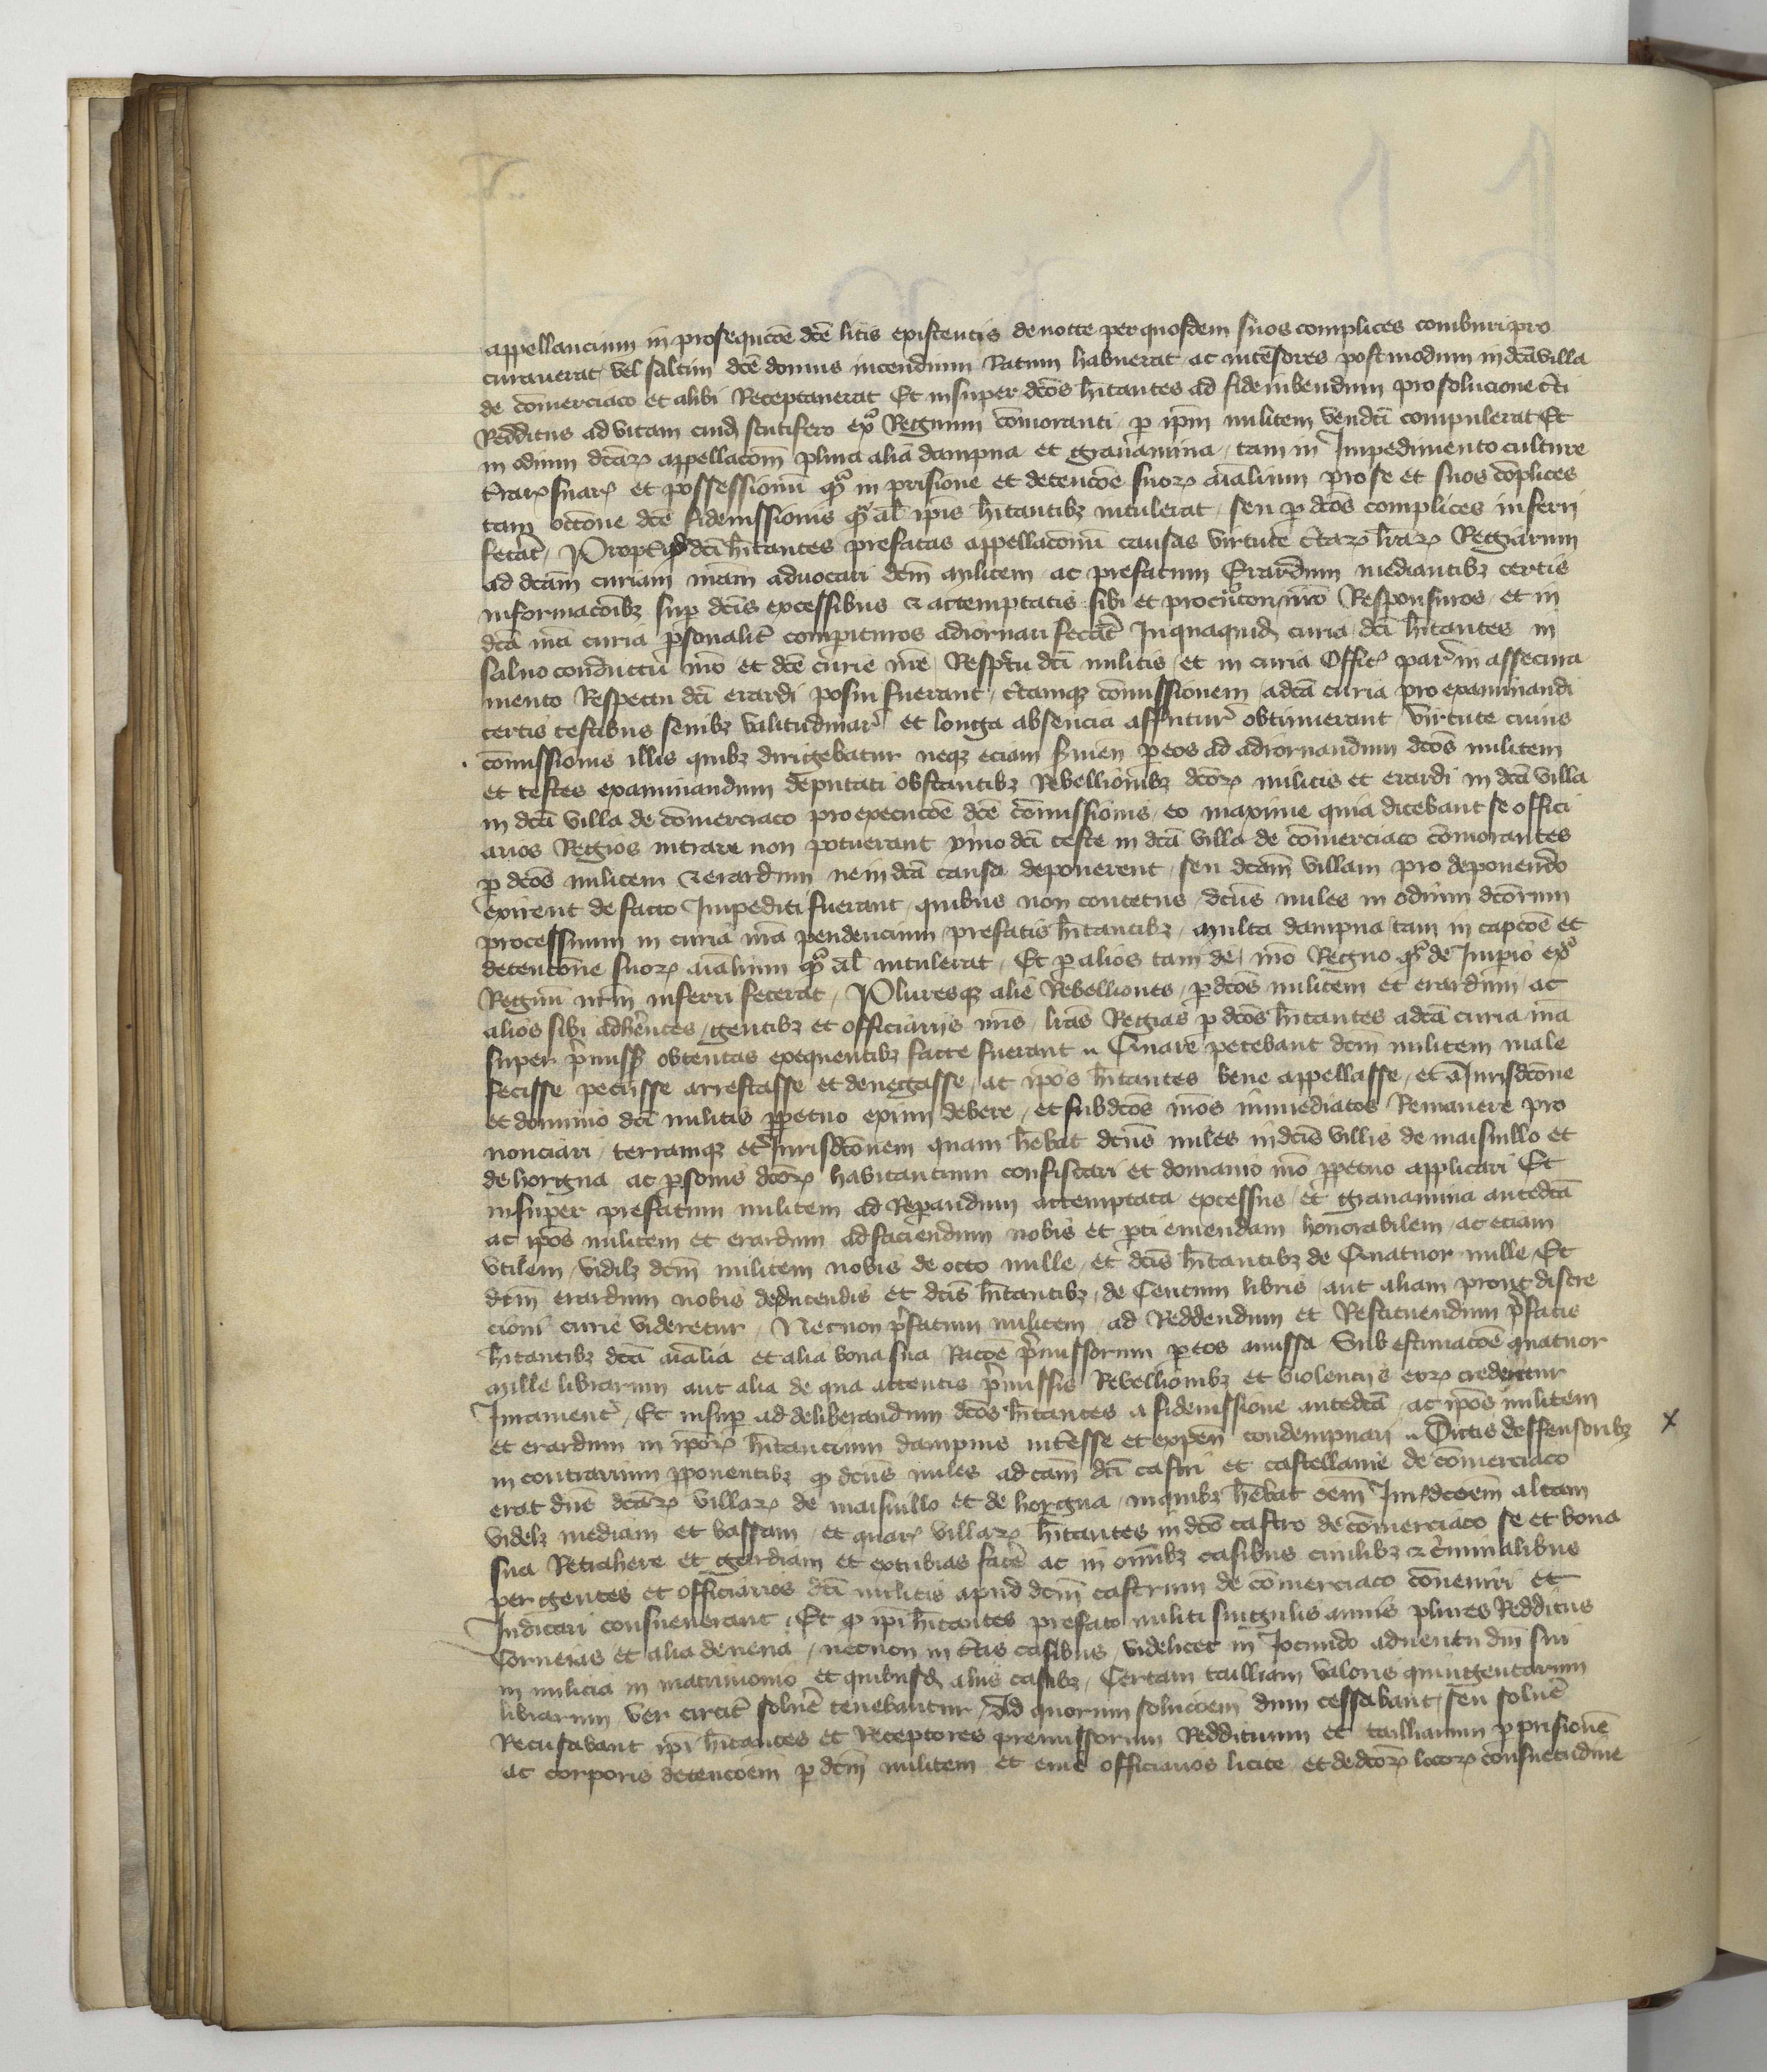 appellancium in prosequc̄oe dc̄e litis existentis de nocte per quosdem suos complices comburi pro
curaverat vel saltim dc̄e domus incendium Ratum habuerat ac incēsores postmodum in dc̄a villa
de cōmerciaco et alibi Receptaverat Et insuper dc̄os hītantes ad fideiubendum pro solucione c̄ti
Redditus ad vitam cuid scutifero exᵃ Regnum cōmoranti p ip̄m militem venditi compulerat Et
in odium dc̄aꝝ appellacōm plura alia dampna et gravamina / tam in Impedimento culture
t̄raꝝ suaꝝ et possessionū qᵃ in prisione et detencōe suoꝝ aīalium pro se et suos cōplices
tam occ̄one dc̄e fideiussionis qᵃ al̄ ip̄is hītantibꝫ intulerat / seu p dc̄os complices inferri
fecāt / Propt̄ qd dc̄i hītantes prefatas appellacōnū causas virtute c̄taꝝ lr̄aꝝ Regiarum
ad dc̄am curiam nr̄am advocari dc̄m militem ac prefatum Erardum mediantibꝫ certis
informacōibꝫ sup dc̄is excessibus & actemptatis sibi et procuratori nr̄o Responsuros / et in
dc̄a nr̄a curia p̄sonalit̄ comparituros adiornari fecāt In quaquid curia dc̄i hītantes in
salvo conductu nr̄o et dc̄e curie nr̄e Respc̄tu dc̄i militis / et in curia Offic̄ par̄ in assecura
mento Respectu dc̄i erardi positi fuerant / c̄tamqꝫ cōmissionem / a dc̄a curia pro examinandi
certis testibus senibꝫ valitudinar̄ et longa absencia affutur̄ obtinuerant / virtute cuius
cōmissionis illis quibꝫ dirigebatur neqꝫ eciam s̄vien p eos ad adiornandum dc̄os militem
et testes examinandum deputati obstantibꝫ Rebellionibꝫ dc̄oꝝ militis et erardi in dc̄a villa
in dc̄a villa de cōmerciaco pro execucōe dc̄e cōmissionis / eo maxime quia dicebant se offici
arios Regios intrare non potuerant ymo dc̄i teste in dc̄a villa de cōmerciaco cōmorantes
p dc̄os militem & erardum ne in dc̄a causa deponerent / seu dc̄am villam pro deponendo
exirent de facto Impediti fuerant / quibus non contētus / dc̄us miles in odium dc̄orum
processuum in curia nr̄a pendencium / prefatis hītantibꝫ / multa dampna tam in capcōe et
detencōne suoꝝ aīalium qᵃ al̄ intulerat / Et p alios tam de / nr̄o Regno qᵃ de Imperio exᵃ
Regnū nr̄m inferri fecerat / Pluresqꝫ alie Rebelliones / p dc̄os militem et erardum / ac
alios sibi adhērentes / gentibꝫ et officiariis nr̄is / lr̄as Regias p dc̄os hītantes a dc̄a curia nr̄a
super p̄miss obtentas exequentibꝫ facte fuerant .. Quare petebant dc̄m militem male
fecisse pecusse arrestasse et denegasse / ac ip̄os hītantes bene appellasse / et a Jurisdc̄one
et dominio dc̄i militis ppetuo eximi debere / et sub dc̄os nr̄os immediatos Remanere pro
nonciari / terramqꝫ et Jurisdc̄onem quam hēbat dc̄us miles in dc̄is villis de maisnillo et
de horgna ac p̄sonis dc̄oꝝ habitancium confiscari et domanio nr̄o ppetuo applicari Et
insuper prefatum militem ad Reparandum actemptata excessus / et gravamina antedc̄a
ac ip̄os militem et erardum ad faciendum nobis et parti emendam honorabilem / ac eciam
utilem / videlꝫ dc̄m militem nobis de octo mille / et dc̄is hītantibꝫ de Quatuor mille Et
dc̄m erardum nobis de ducendis et dc̄is hītantibꝫ / de Centum libris / aut aliam prout discre
cioni curie videretur / Necnon p̄fatum militem / ad Reddendum et Restituendum p̄fatis
hītantibꝫ dc̄a aīalia et alia bona sua Rac̄oe p̄missorum p eos amissa Sub estimacōe quatuor
mille librarum aut alia de qua attentis p̄missis Rebellionibꝫ et violenciis eoꝝ crederetur
Jurament̄ / Et insup ad deliberandum dc̄os hītantes a fideiussione antedc̄a / ac ip̄os militem
et erardum in ip̄oꝝ hītancium dampnis int̄esse et expēn condempnari .. Dictis deffensoribꝫ x
in contrarium pponentibꝫ qꝫ dc̄us miles ad cām dc̄i castri et castellanie de cōmerciaco
erat dn̄s dc̄aꝝ villaꝝ de maisnillo et de horgna / in quibꝫ hēbat oēm Jur̄dcōem altam
videlꝫ mediam et bassam / et quaꝝ villaꝝ hītantes in dc̄o castro de cōmerciaco se et bona
sua Retrahere et gardiam et excubias facē ac in omibꝫ casibus civilibꝫ & c̄minalibus
per gentes et officiarios dc̄i militis apud dc̄m castrum de cōmerciaco cōveniri et
Judicari consueverant / Et qꝫ ip̄i hītantes prefato militi singulis annis plures Redditus
Corveias et alia deveria / necnon in c̄tis casibus / videlicet in Jocundo adventu dn̄i sui
in milicia in matrimonio et quibusd aliis casibꝫ / Certam tailliam valoris quingentarum
librarum / vel circit̄ solvē tenebantur / Ad quorum solucōem dum cessabant / seu solvē
Recusabant ip̄i hītantes et Receptores premissorum Reddituum et tailliarum p prisionē
ac corporis detencōem p dc̄m militem et eius officiarios licite et de dc̄oꝝ locoꝝ consuetudine